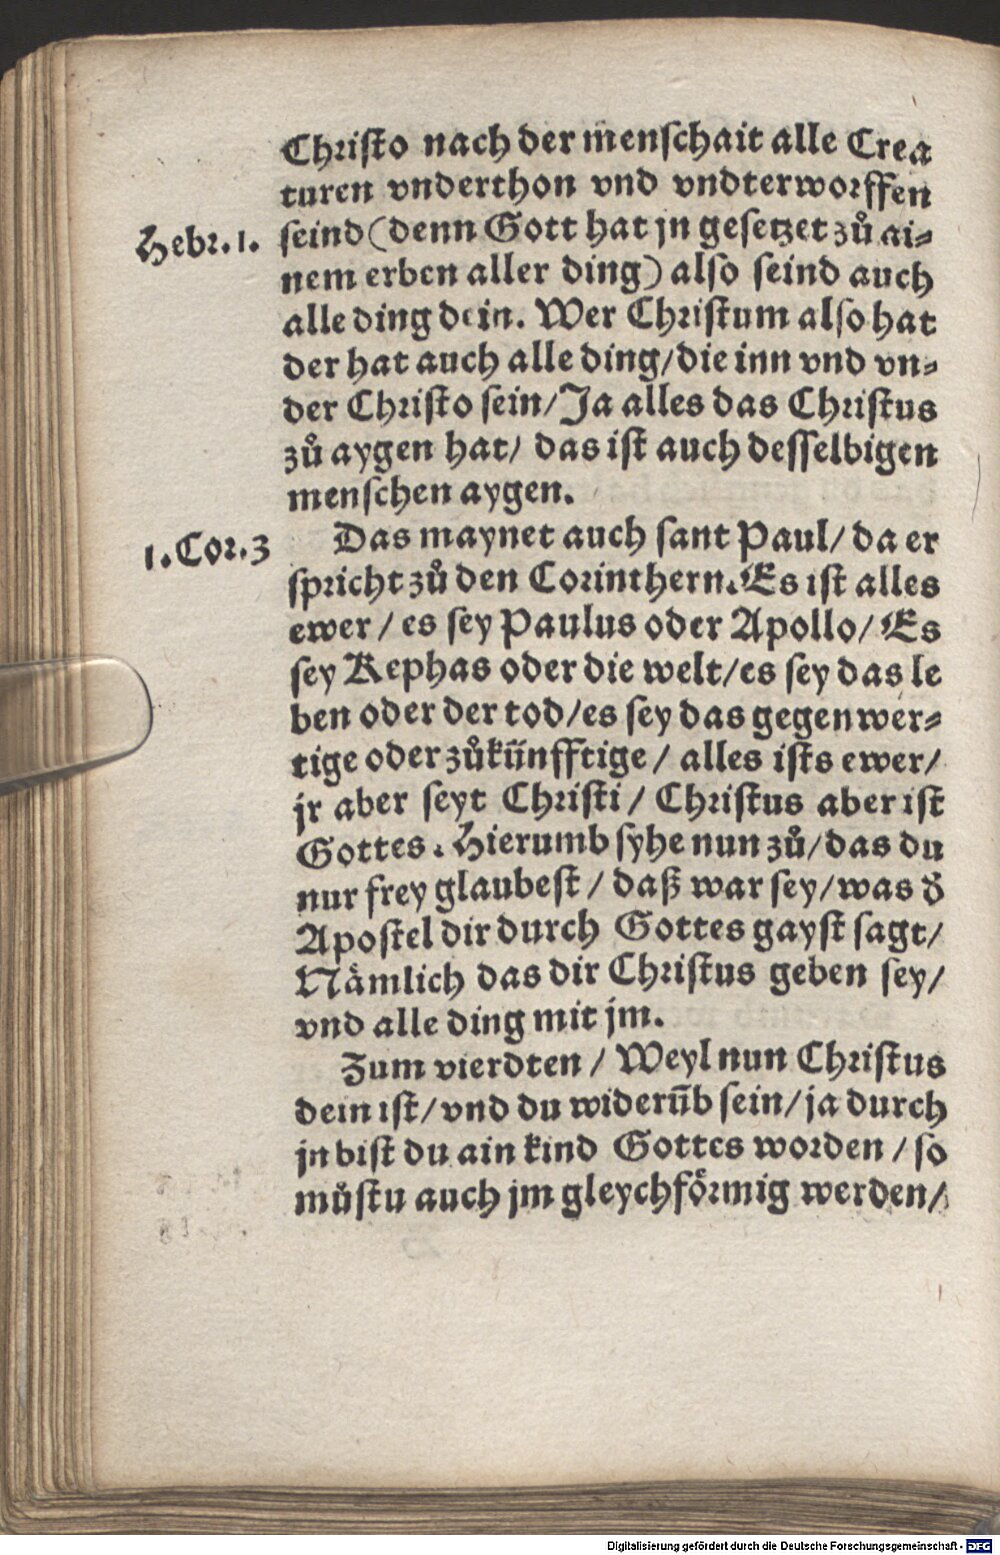 Christo nach der menschait alle Crea
turen vnderthon vnd vndterworffen
Hebr. 1. seind (denn Gott hat jn gesetzet zů ai-
nem erben aller ding) also seind auch
alle ding dein. Wer Christum also hat
der hat auch alle ding/die inn vnd vn-
der Christo sein/Ja alles das Christus
zů aygen hat/ das ist auch desselbigen
menschen aygen.
1. Cor. 3 Das maynet auch sant Paul/ da er
spricht zů den Corinthern. Es ist alles
ewer / es sey Paulus oder Apollo/ Es
sey Kephas oder die welt/es sey das le
ben oder der tod/es sey das gegenwer-
tige oder zůkünfftige / alles ists ewer/
jr aber seyt Christi / Christus aber ist
Gottes. Hierumb syhe nun zů/das du
nur frey glaubest / daß war sey/was d̕
Apostel dir durch Gottes gayst sagt/
Nämlich das dir Christus geben sey/
vnd alle ding mit jm.
Zum vierdten / Weyl nun Christus
dein ist/vnd du widerūb sein/ja durch
jn bist du ain kind Gottes worden / so
můstu auch jm gleychförmig werden/
Digitalisierung gefördert durch die Deutsche Forschungsgemeinschaft - DFG